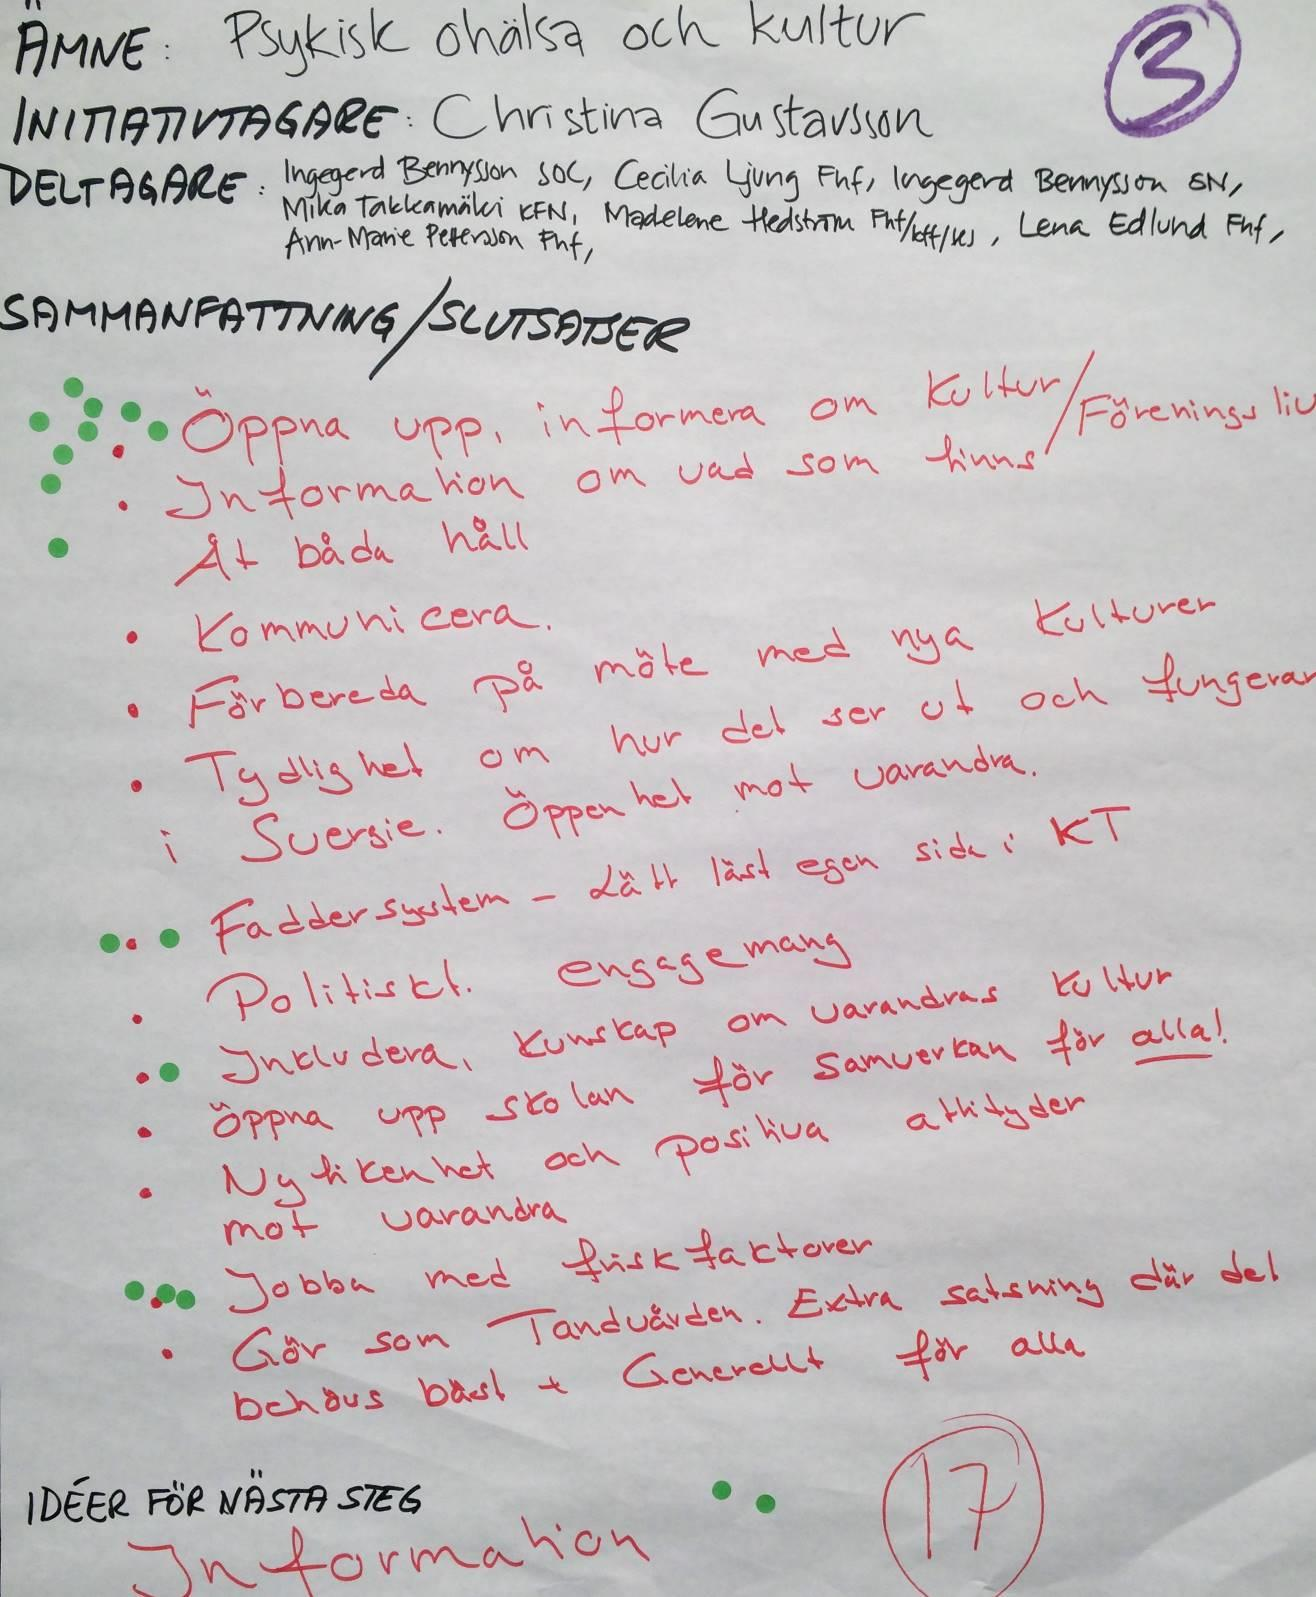 ÄMNE: Psykisk ohälsa och kultur
3
INITIATIVTAGARE: Christina Gustavsson
DELTAGARE: Ingegerd Bennysson SOC, Cecilia Ljung Fhf, Ingegerd Bennysson SN,
Mika Takkamäki KFN, Madelene Hedström Fhf/kff/, Lena Edlund Fhf,
Ann-Marie Petersson Fhf,
SAMMANFATTNING/SLUTSATSER
• Öppna upp, informera om kultur/Föreningsliv
• Information om vad som finns
Åt båda håll
• Kommunicera.
• Förbereda på möte med nya kulturer
• Tydlighet om hur det ser ut och fungerar
i Svergie. Öppenhet mot varandra.
• Faddersystem – Lätt läst egen sida i KT
• Politiskt. engagemang
• Inkludera, kunskap om varandras kultur
• Öppna upp skolan för samverkan för alla!
• Nyfikenhet och positiva attityder
mot varandra
• Jobba med friskfaktorer
• Gör som Tandvården. Extra satsning där det
behövs bäst + Generellt för alla
IDÉER FÖR NÄSTA STEG
17
Information